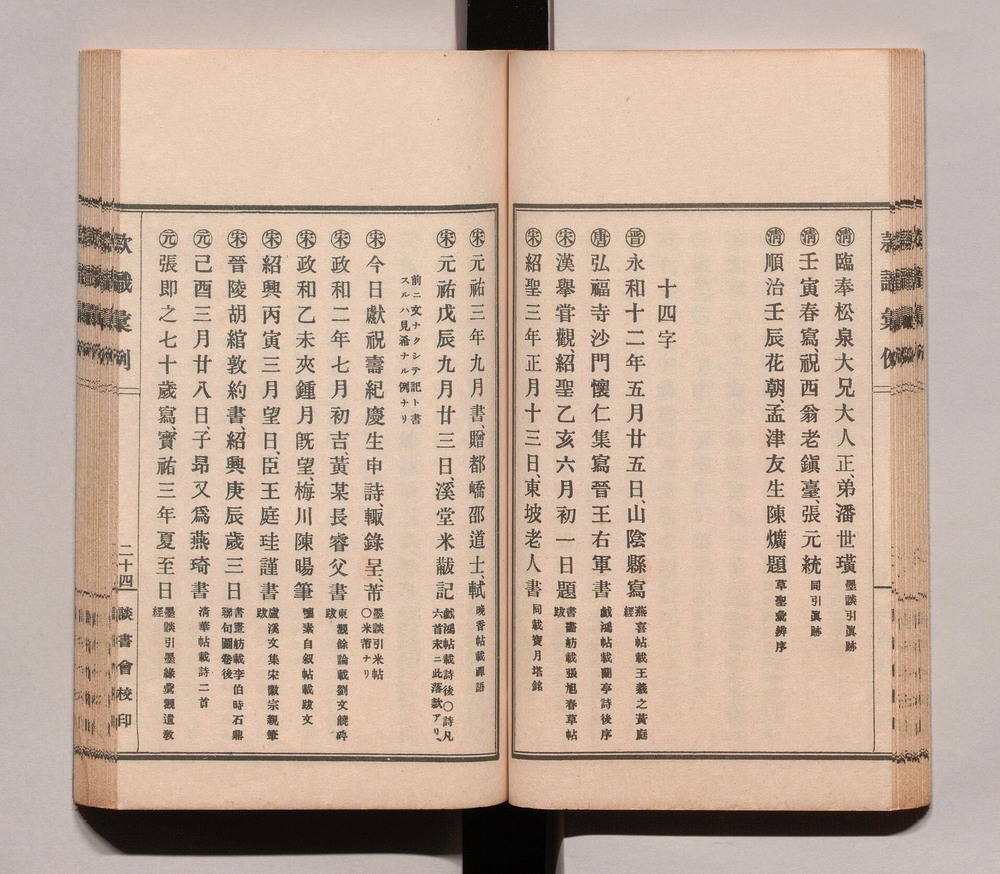 ㊟清 臨奉松泉大兄大人正、弟潘世璜 墨談引眞跡
清 壬寅春寫、祝西翁老鎭臺、張元統 同引眞跡
清 順治壬辰花朝、孟津友生陳爌題 草聖彙辨序
十四字
晉 永和十二年五月廿五日、山陰縣寫 燕喜帖載王羲之黃庭經
唐 弘福寺沙門懷仁集寫晉王右軍書 戲鴻帖載蘭亭詩後序
宋 漢擧嘗觀、紹聖乙亥六月初一日題 書畵舫載張旭春草帖跋
宋 紹聖三年正月十三日、東坡老人書 同載寶月塔銘
宋 元祐三年九月書、贈都嶠邵道士、軾 晚香帖載禪語
宋 元祐戊辰九月廿三日、溪堂米黻記 戲鴻帖載詩後〇詩凡六首末ニ此落款アリ、
前ニ文ナクシテ記ト書
スルハ見希ナル例ナリ
宋 今日獻祝壽紀慶生申詩、輙錄呈、芾 墨談引米帖〇米芾ナリ
宋 政和二年七月初吉、黃某長睿父書 東觀餘論載劉文饒碑跋
宋 政和乙未夾鍾月旣望、梅川陳暘筆 懷素自叙帖載跋文
宋 紹興丙寅三月望日、臣王庭珪謹書 盧溪文集宋徽宗親筆跋
宋 晉陵胡綰敦約書、紹興庚辰歲三日 書畫舫載李伯時石鼎聯句圖卷後
元 己酉三月廿八日、子昂又爲燕琦書 淸華帖載詩二首
元 張即之七十歲寫、寶祐三年夏至日 墨談引墨緣彙觀遺敎經
款識彙例
二十四
談書會校印